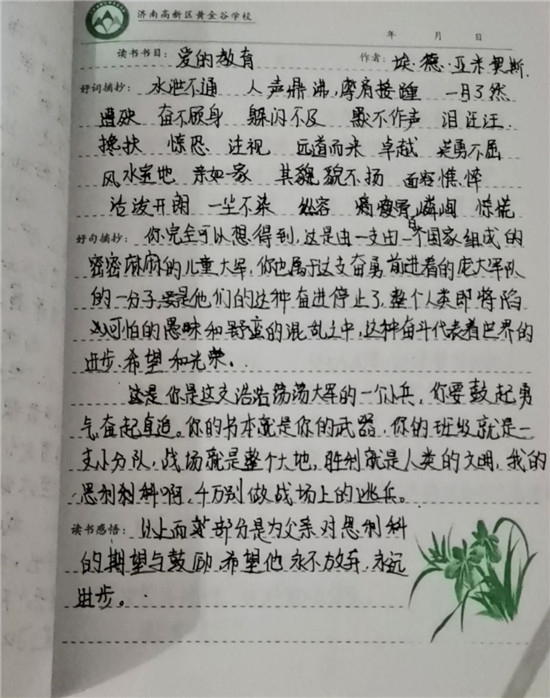 济南高新区黄金谷学校
年 月 日
读书书目: 爱的教育 作者: 埃·德·亚米契斯.
好词摘抄: 水泄不通 人声鼎沸,摩肩接踵 一目了然
遭殃 奋不顾身 躲闪不及 默不作声 泪汪汪
搀扶 惊恐 注视 远道而来 卓越 英勇不屈
风水宝地 亲如一家 其貌不扬 面容憔悴
活泼开朗 一尘不染 从容 瘦骨嶙峋 惊慌
好句摘抄: 你完全可以想得到,这是由一支由一百个国家组成的
密密麻麻的儿童大军,你也属于这支奋勇前进着的庞大军队
的一分子,要是他们的这种奋进停止了,整个人类即将陷
入可怕的愚昧和野蛮的混乱之中,这种奋斗代表着世界的
进步.希望和光荣.
这是你是这支浩浩荡荡大军的一个小兵,你要鼓起勇
气奋起直追。你的书本就是你的武器,你的班级就是一
支小分队,战场就是整个大地,胜利就是人类的文明,我的
恩利科啊,千万别做战场上的逃兵。
读书感悟: 以上面部分是为父亲对恩利科
的期望与鼓励,希望他永不放弃,永远
进步。